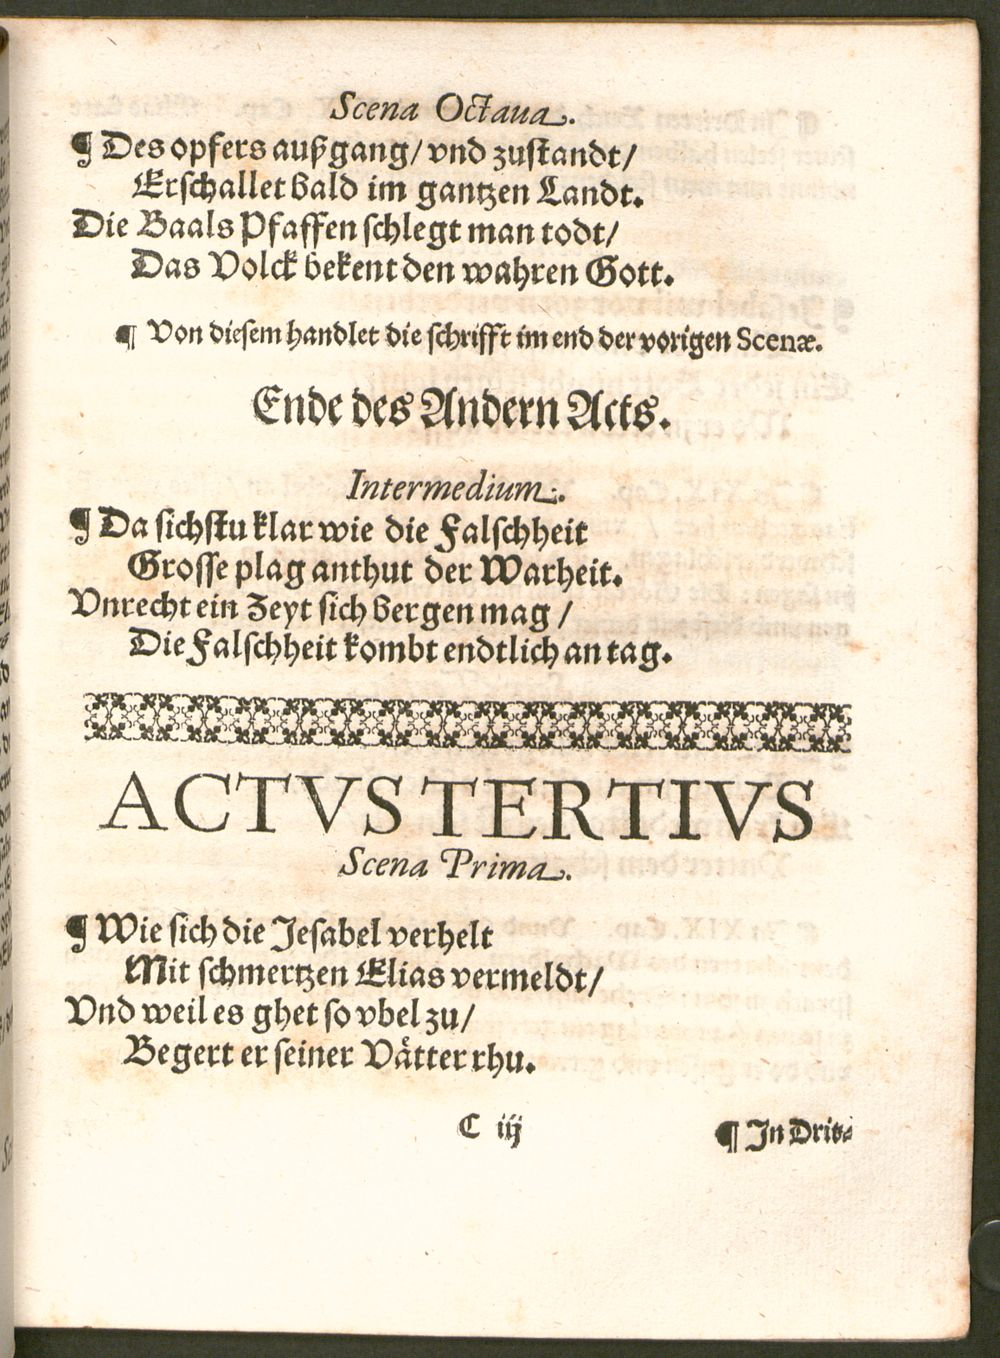 Scena Octaua.
¶ Des opfers außgang/ vnd zustandt/
Erschallet bald im gantzen Landt.
Die Baals Pfaffen schlegt man todt/
Das Volck bekent den wahren Gott.
¶ Von diesem handlet die schrifft im end der vorigen Scenæ.
Ende des Andern Acts.
Intermedium.
¶ Da sichstu klar wie die Falschheit
Grosse plag anthut der Warheit.
Vnrecht ein Zeyt sich bergen mag /
Die Falschheit kombt endtlich an tag.
ACTVS TERTIVS
Scena Prima.
¶ Wie sich die Jesabel verhelt
Mit schmertzen Elias vermeldt/
Vnd weil es ghet so vbel zu/
Begert er seiner Vätter rhu.
C iij
¶ In Drit-